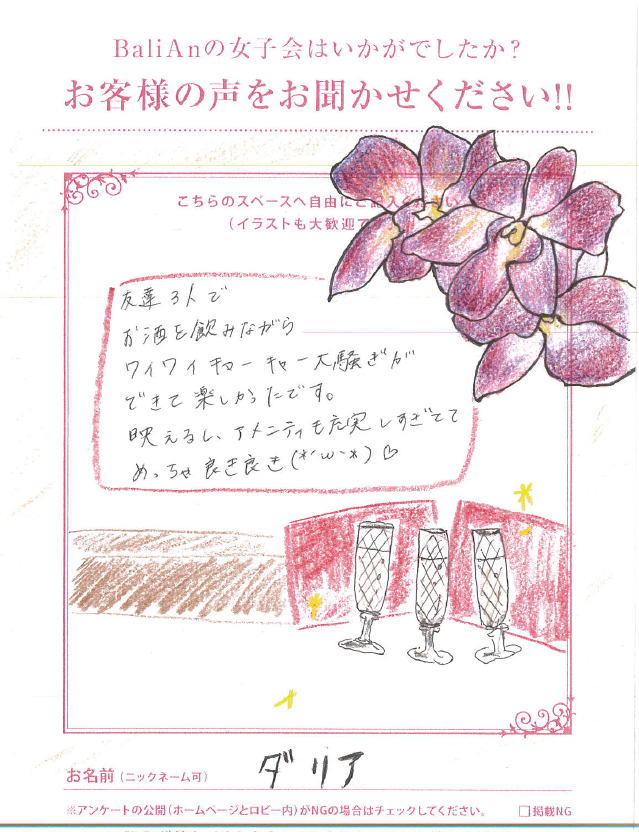 BaliAnの女子会はいかがでしたか?
お客様の声をお聞かせください!!
こちらのスペースへ自由にご
(イラストも大歓迎で
友達3人で
お酒を飲みながら
ワイワイキャーキャー大騒ぎが
できて楽しかったです。
映えるし、アメニティも充実しすぎてて
めっちゃ良き良き(*´ω`*)♡
お名前(ニックネーム可) ダリア
※アンケートの公開(ホームページとロビー内)がNGの場合はチェックしてください。 □掲載NG